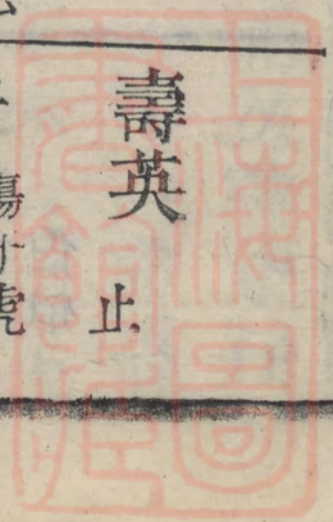 壽英
止
上海圖
書館藏